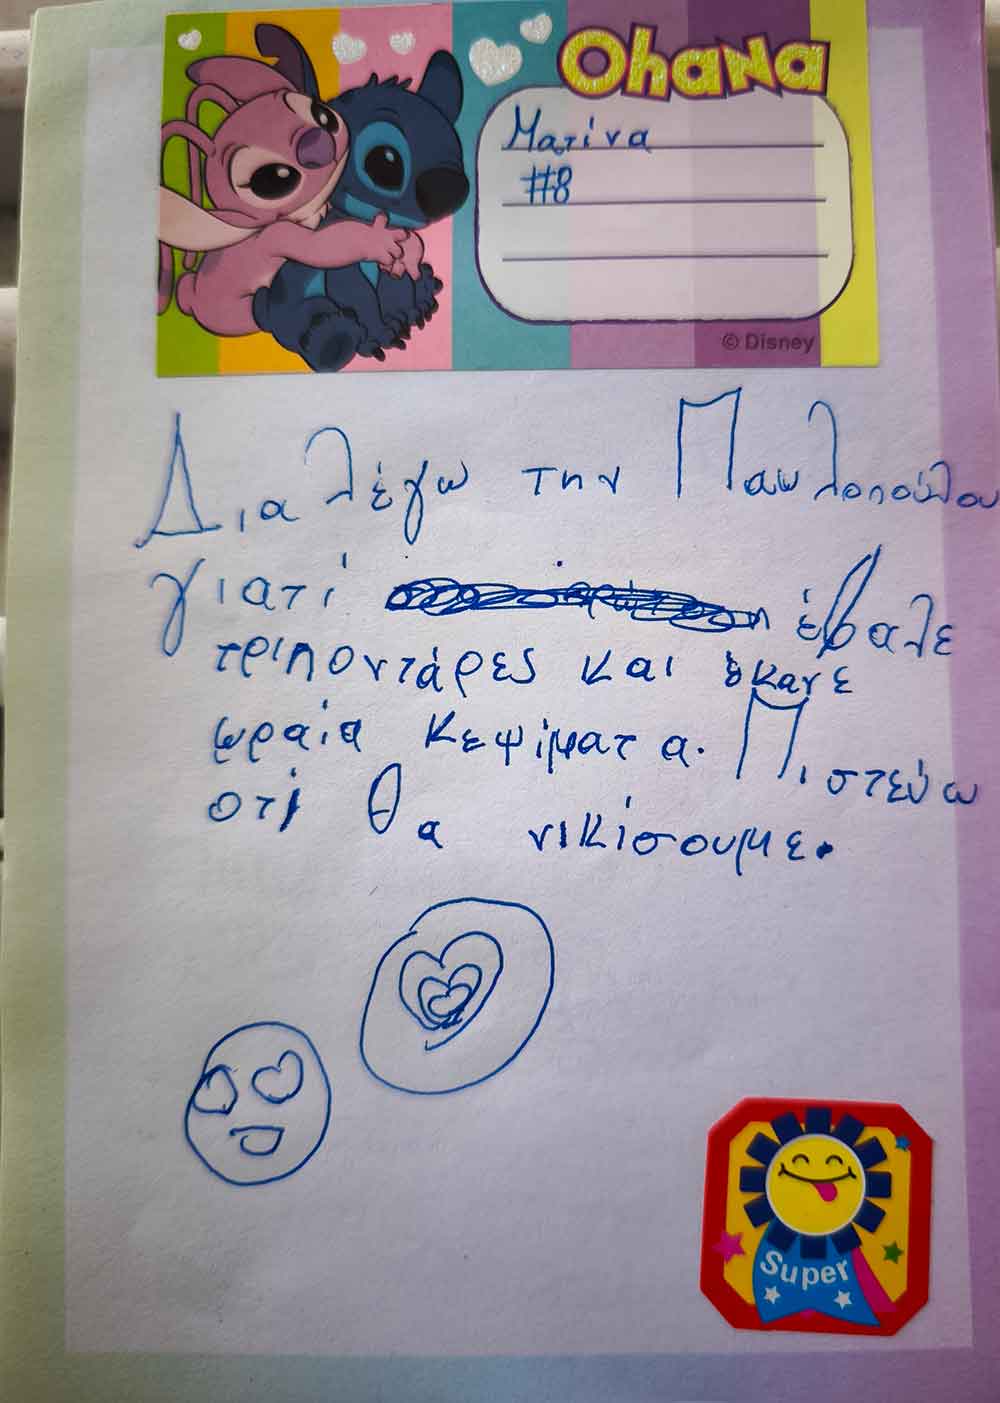 Ohana
Ματίνα
#8
© Disney
Διαλέγω την Παυλοπούλου
γιατί έβαλε
τριποντάρες και έκανε
ωραία κεψίματα. Πιστεύω
ότι θα νικίσουμε.
Super